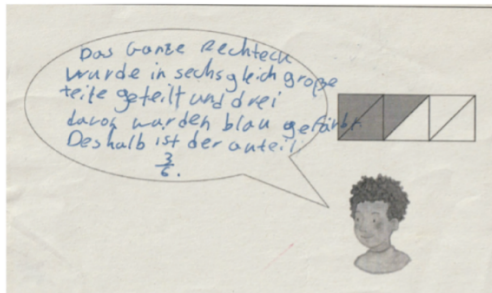 Das Ganze Rechteck
wurde in sechsgleich große
teile geteilt und drei
davon wurden blau gefärbt.
Deshalb ist der anteil
3/6.